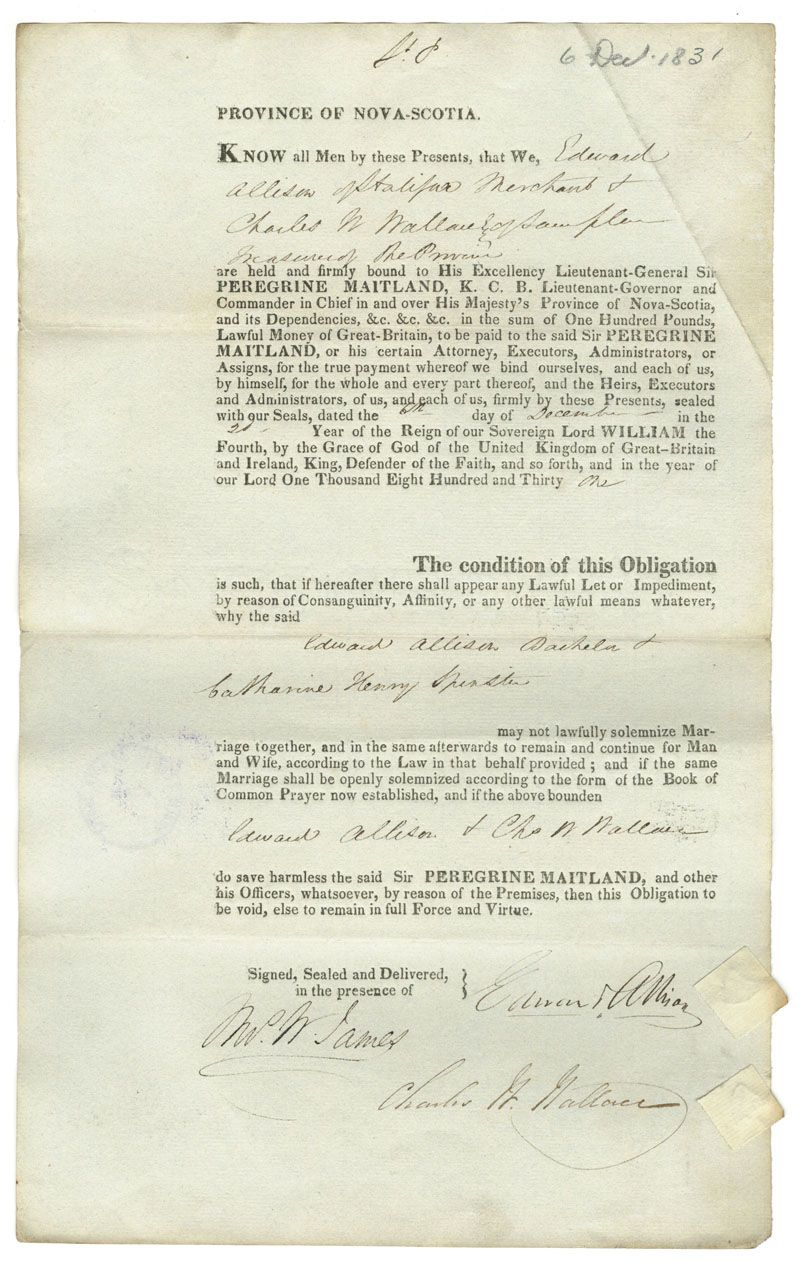 6 Decr. 1831
PROVINCE OF NOVA-SCOTIA.
KNOW all Men by these Presents, that We, Edward
Allison of Halifax Merchant &
Charles W Wallace of same place
Treasurer of the Province
are held and firmly bound to His Excellency Lieutenant-General Sir
PEREGRINE MAITLAND, K. C. B. Lieutenant-Governor and
Commander in Chief in and over His Majesty's Province of Nova-Scotia,
and its Dependencies, &c. &c. &c. in the sum of One Hundred Pounds,
Lawful Money of Great-Britain, to be paid to the said Sir PEREGRINE
MAITLAND, or his certain Attorney, Executors, Administrators, or
Assigns, for the true payment whereof we bind ourselves, and each of us,
by himself, for the whole and every part thereof, and the Heirs, Executors
and Administrators, of us, and each of us, firmly by these Presents, sealed
with our Seals, dated the 6th day of December in the
2d Year of the Reign of our Sovereign Lord WILLIAM the
Fourth, by the Grace of God of the United Kingdom of Great-Britain
and Ireland, King, Defender of the Faith, and so forth, and in the year of
our Lord One Thousand Eight Hundred and Thirty one
The condition of this Obligation
is such, that if hereafter there shall appear any Lawful Let or Impediment,
by reason of Consanguinity, Affinity, or any other lawful means whatever,
why the said
Edward Allison Bachelor &
Catharine Henry Spinster
may not lawfully solemnize Mar-
riage together, and in the same afterwards to remain and continue for Man
and Wife, according to the Law in that behalf provided ; and if the same
Marriage shall be openly solemnized according to the form of the Book of
Common Prayer now established, and if the above bounden
Edward Allison & Chs W Wallace
do save harmless the said Sir PEREGRINE MAITLAND, and other
his Officers, whatsoever, by reason of the Premises, then this Obligation to
be void, else to remain in full Force and Virtue.
Signed, Sealed and Delivered,
in the presence of
Edward Allison
W. James
Charles W. Wallace